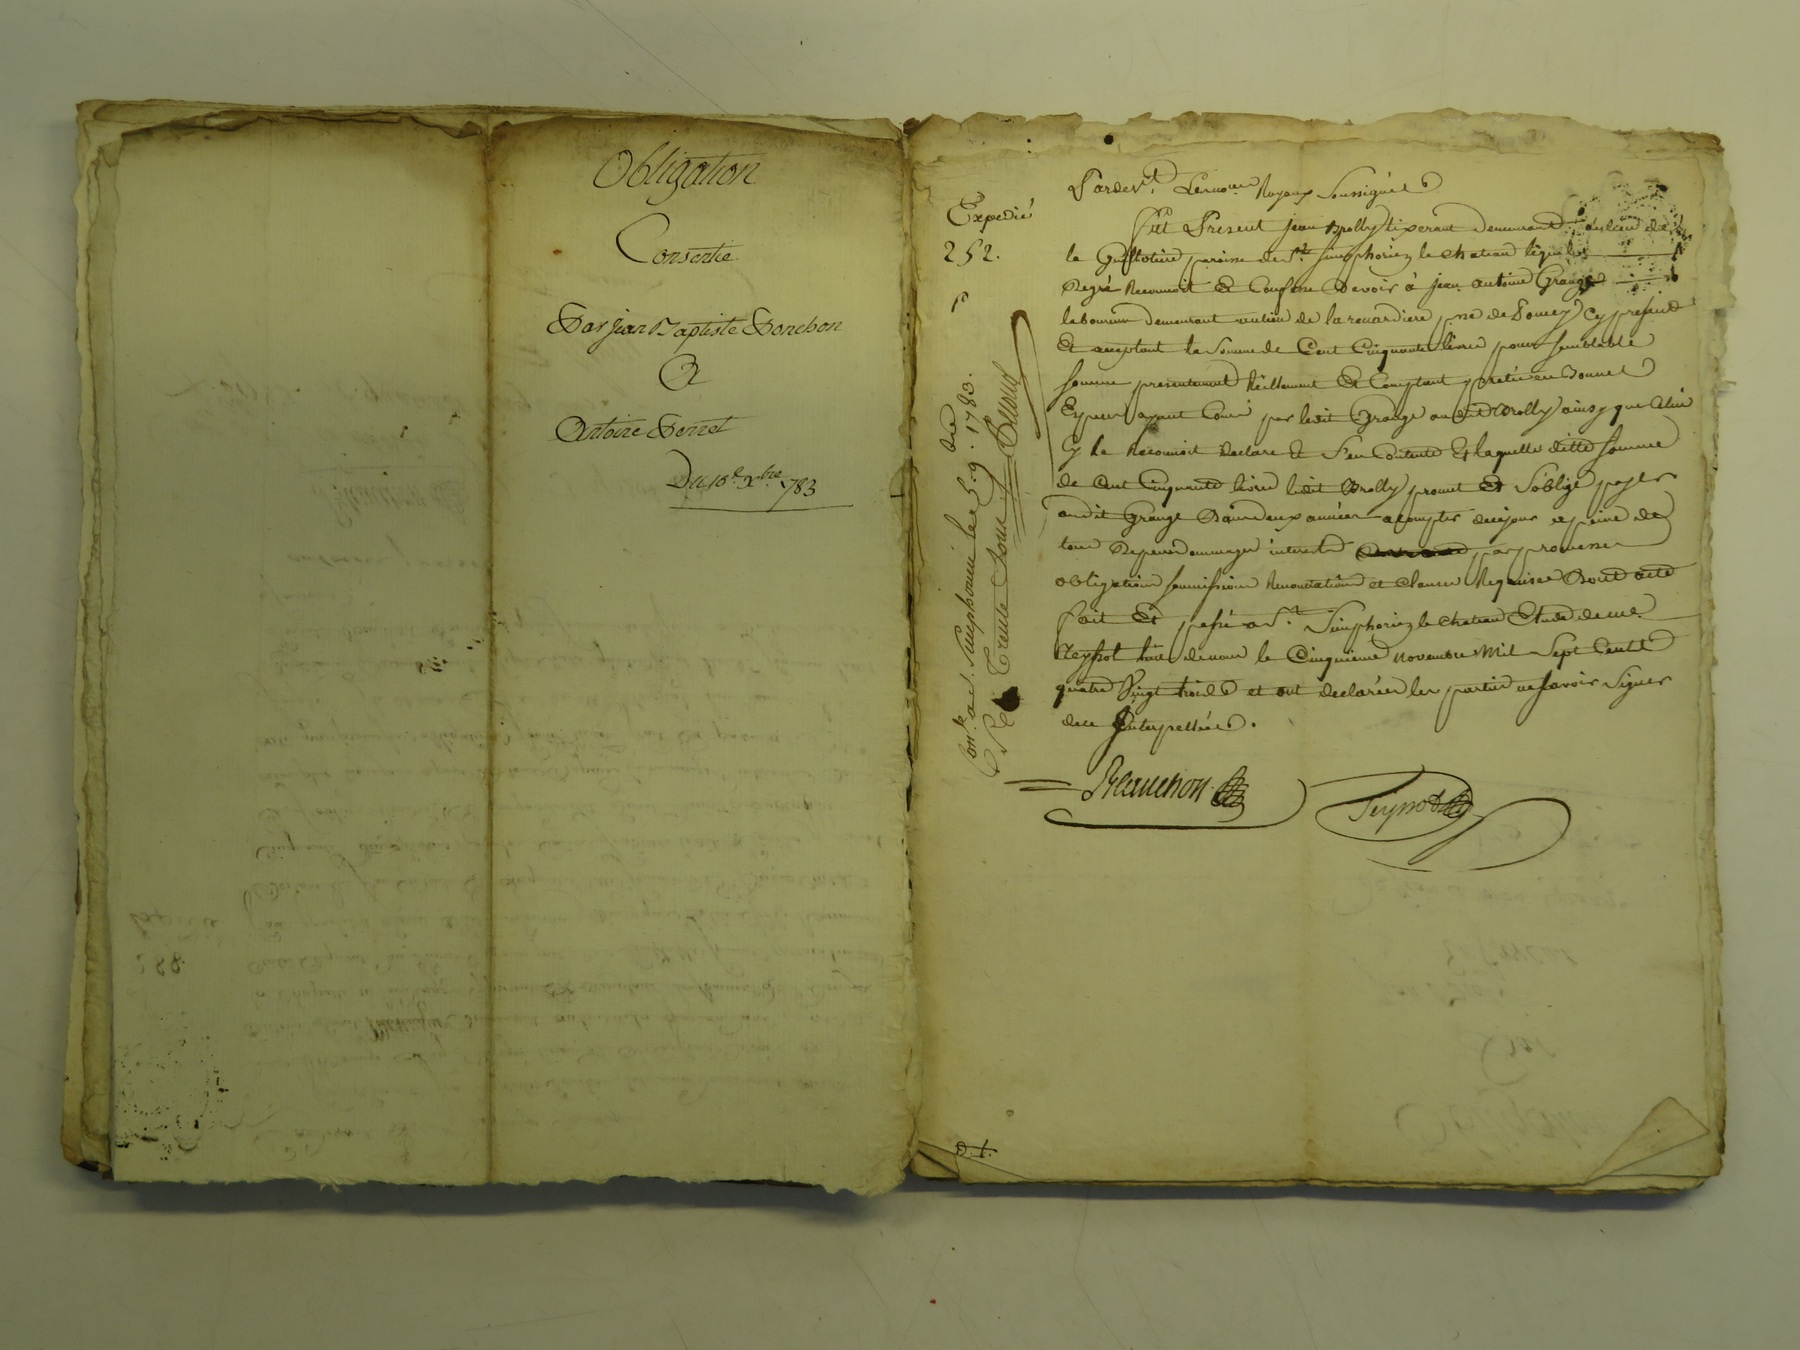 Obligation
Consentie
Par Jean Baptiste Ponchon
&
Antoine Perret
Du 10e xbre 1783
Expedié
252.
Pardevt. Royaux Soussignés
fut Present jean Brolly tixerant demeurant au lieu de
la paroisse de St. simphorien le chateau lequel
Degré Reconnoit Et Confesse Devoir à jean antoine Grange
laboureur demeurant au lieu de la renardiere psse de Pomey Cy present
Et acceptant la Somme de Cent Cinquante livres pour semblable
somme presentement Réellement Et Comptant pretée en Bonnes
Especes ayant Cours par ledit Grange audit Brolly ainsy que Celui
Cy le Reconnoit declare Et S'en Contente Et laquelle ditte somme
de Cent Cinquante livres ledit Brolly promet Et S'oblige payer
audit Grange Dans deux années a compter de ce jour a peine de
tous Depens dommages interets par promesses
obligations soummissions Renonciations et clauses Requises Dont acte
fait Et passé a St. Simphorien le chateau Etude de me.
Peyssot l'un de nous le Cinquieme novembre Mil Sept Cents
quatre Vingt trois et ont declarées les parties ne savoir Signer
de ce Interpellées.
Peyssot
Conk. a St. Simphorien le 5. 9. bre 1783.
R Trente Sous